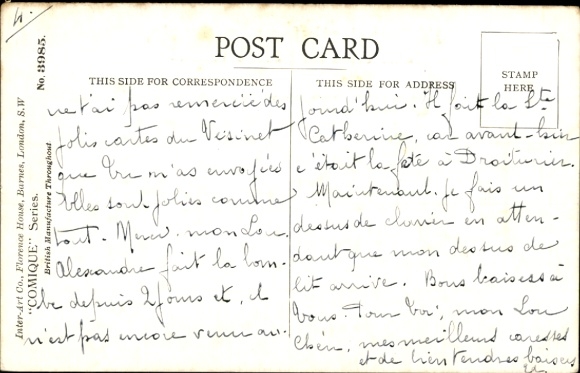 4.
POST CARD
THIS SIDE FOR CORRESPONDENCE
THIS SIDE FOR ADDRESS
STAMP
HERE
No. 3985.
Inter-Art Co., Florence House, Barnes, London, S.W
"COMIQUE" Series.
British Manufacture Throughout
ne t'ai pas remercié des
jolies cartes du Vésinet
que tu m'as envoyées
Elles sont jolies comme
tout. Merci, mon Lou.
Alexandre fait la bom-
be depuis 2 jours et il
n'est pas encore venu au-
jourd'hui. Il fait la Ste
Catherine, car avant-hier
c'était la fête à Droiturier.
Maintenant je fais un
dessus de clavier en atten-
dant que mon dessus de
lit arrive. Bons baisers à
tous. Pour toi, mon Lou
chéri, mes meilleures caresses
et de bien tendres baisers